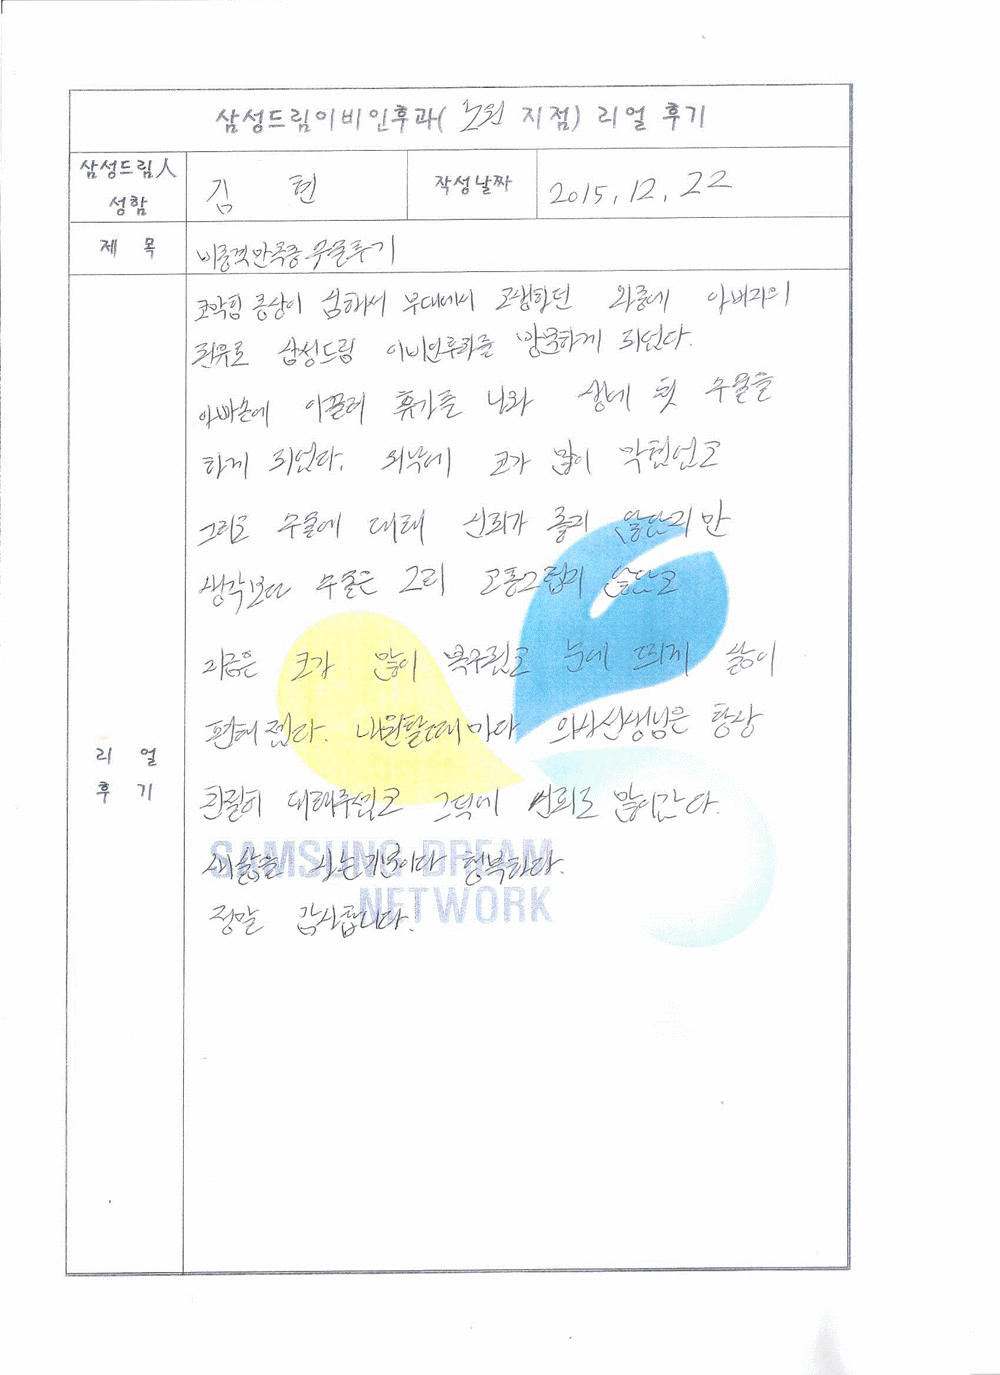 삼성드림이비인후과( 노원 지점) 리얼 후기
삼성드림人 성함
김 현
작성날짜
2015. 12. 22
제 목
비중격만곡증 수술후기
리 얼 후 기
코막힘 증상이 심해서 부대에서 고생하던 와중에 아버지의
권유로 삼성드림 이비인후과를 방문하게 되었다.
아빠손에 이끌려 휴가를 나와 생애 첫 수술을
하게 되었다. 워낙에 코가 많이 막혔었고
그리고 수술에 대해 신뢰가 좋지 않았지만
생각보다 수술은 그리 고통스럽지 않았고
지금은 코가 많이 복구됐고 눈에 띄게 삶이
편해졌다. 내원할때마다 의사선생님은 항상
친절히 대해주셨고 그덕에 신뢰도 많이간다.
새삶을 사는기분이다 행복하다.
정말 감사합니다.
SAMSUNG DREAM
NETWORK